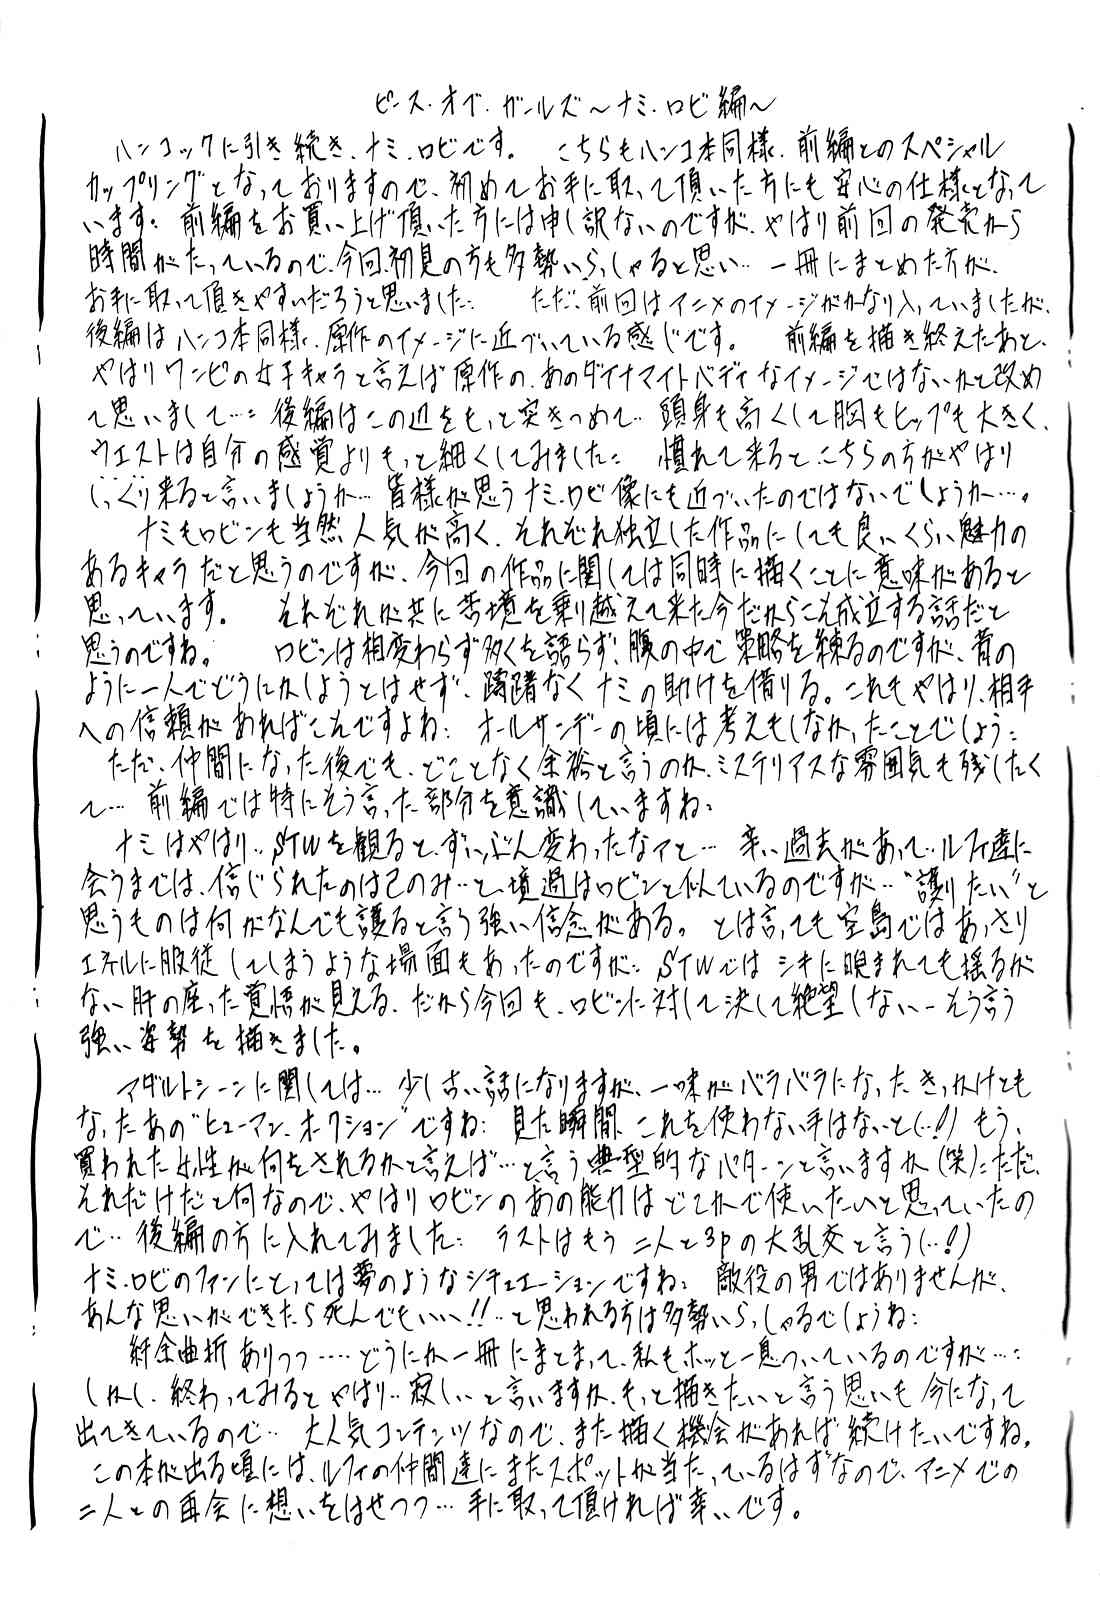 ピース・オブ・ガールズ〜ナミ・ロビ編〜
ハンコックに引き続き、ナミ・ロビです。 こちらもハンコ本同様、前編とのスペシャル
カップリングとなっておりますので、初めてお手に取って頂いた方にも安心の仕様となって
います: 前編をお買い上げ頂いた方には申し訳ないのですが、やはり前回の発売から
時間がたっているので、今回、初見の方も多勢いらっしゃると思い… 一冊にまとめた方が、
お手に取って頂きやすいだろうと思いました: ただ、前回はアニメのイメージがかなり入っていましたが、
後編はハンコ本同様、原作のイメージに近づいている感じです。 前編を描き終えたあと、
やはりワンピの女子キャラと言えば原作の、あのダイナマイトバディなイメージではないかと改め
て思いまして…: 後編はこの辺をもっと突きつめて… 頭身も高くして胸もヒップも大きく、
ウエストは自分の感覚よりもっと細くしてみました: 慣れて来ると、こちらの方がやはり
しっくり来ると言いましょうか… 皆様が思うナミ・ロビ像にも近づいたのではないでしょうか…。
ナミもロビンも当然人気が高く、それぞれ独立した作品にしても良いくらい魅力の
あるキャラだと思うのですが、今回の作品に関しては同時に描くことに意味があると
思っています。 それぞれが共に苦境を乗り越えて来た今だからこそ成立する話だと
思うのですね。 ロビンは相変わらず多くを語らず、腹の中で策略を練るのですが、昔の
ように一人でどうにかしようとはせず、躊躇なくナミの助けを借りる。これもやはり、相手
への信頼があればこそですよね: オールサンデーの頃には考えもしなかったことでしょう:
ただ、仲間になった後でも、どことなく余裕と言うのか、ミステリアスな雰囲気も残したく
て… 前編では特にそう言った部分を意識していますね:
ナミはやはり‥STWを観ると、ずいぶん変わったなァと… 辛い過去があって‥ルフィ達に
会うまでは、信じられたのは己のみ…と、境遇はロビンと似ているのですが…“護りたい”と
思うものは何がなんでも護ると言う強い信念がある。とは言っても空島ではあっさり
エネルに服従してしまうような場面もあったのですが: STWではシキに睨まれても揺るが
ない肝の座った覚悟が見える、だから今回も、ロビンに対して決して絶望しない－そう言う
強い姿勢を描きました。
アダルトシーンに関しては… 少し古い話になりますが、一味がバラバラになったきっかけとも
なったあの“ヒューマン・オークション”ですね: 見た瞬間、これを使わない手はないと(…!) もう、
買われた女性が何をされるかと言えば…と言う典型的なパターンと言いますか(笑): ただ、
それだけだと何なので、やはりロビンのあの能力はどこかで使いたいと思っていたの
で‥ 後編の方に入れてみました: ラストはもう二人と3Pの大乱交と言う(…!)
ナミ・ロビのファンにとっては夢のようなシチュエーションですね: 敵役の男ではありませんが、
あんな思いができたら死んでもいい!!‥と思われる方は多勢いらっしゃるでしょうね:
紆余曲折ありつつ…‥どうにか一冊にまとまって、私もホッと一息ついているのですが…:
しかし、終わってみるとやはり‥寂しいと言いますか、もっと描きたいと言う思いも今になって
出てきているので‥ 大人気コンテンツなので、また描く機会があれば続けたいですね。
この本が出る頃には、ルフィの仲間達にまたスポットが当たっているはずなので、アニメでの
二人との再会に想いをはせつつ… 手に取って頂ければ幸いです。